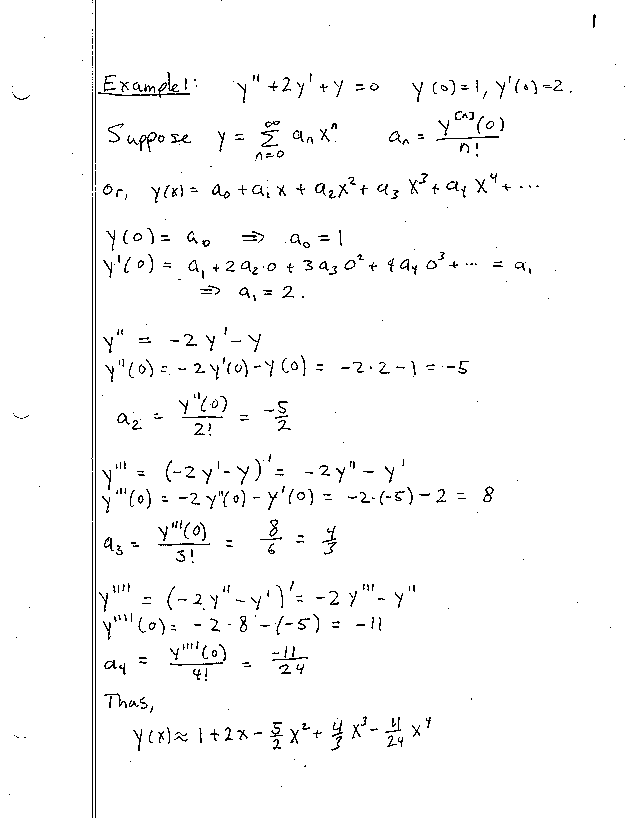 1
Example 1: y'' + 2y' + y = 0 y(0) = 1, y'(0) = 2.
Suppose y = ∑_{n=0}^{∞} a_n x^n. a_n = y^{[n]}(0) / n!
Or, y(x) = a_0 + a_1 x + a_2 x^2 + a_3 x^3 + a_4 x^4 + ...
y(0) = a_0 ⇒ a_0 = 1
y'(0) = a_1 + 2a_2·0 + 3a_3 0^2 + 4a_4 0^3 + ... = a_1
⇒ a_1 = 2.
y'' = -2y' - y
y''(0) = -2y'(0) - y(0) = -2·2 - 1 = -5
a_2 = y''(0) / 2! = -5/2
y''' = (-2y' - y)' = -2y'' - y'
y'''(0) = -2y''(0) - y'(0) = -2·(-5) - 2 = 8
a_3 = y'''(0) / 3! = 8/6 = 4/3
y'''' = (-2y'' - y')' = -2y''' - y''
y''''(0) = -2·8 - (-5) = -11
a_4 = y''''(0) / 4! = -11/24
Thus,
y(x) ≈ 1 + 2x - 5/2 x^2 + 4/3 x^3 - 11/24 x^4